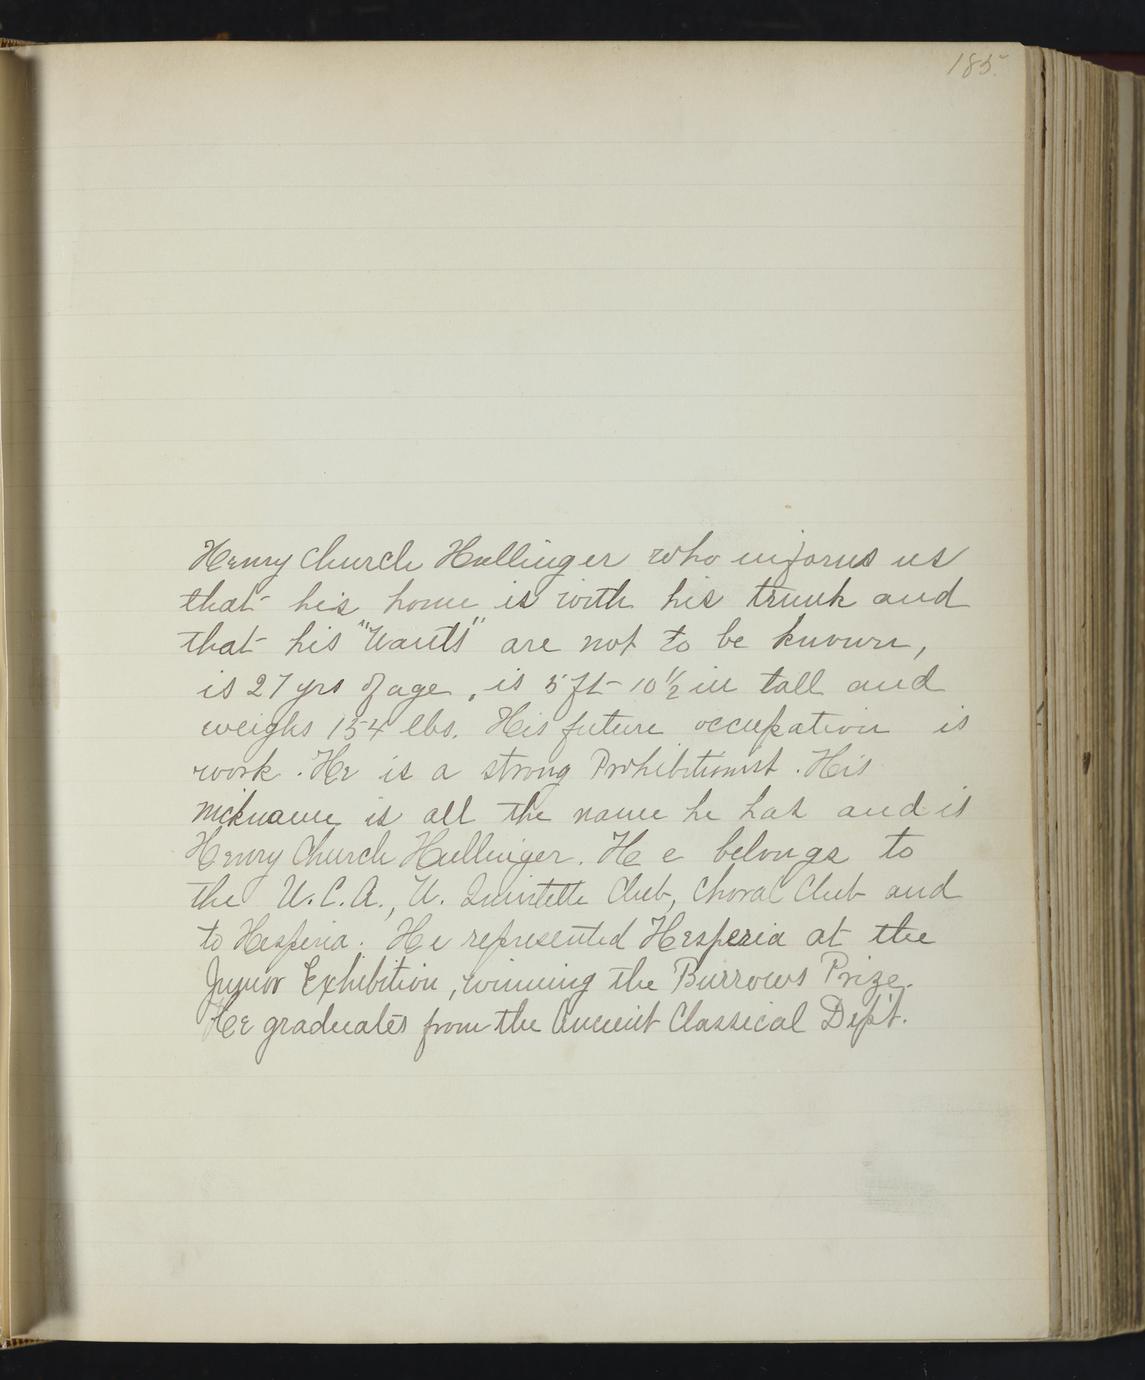 185.
Henry Church Hullinger who informs us
that his home is with his trunk and
that his "Wants" are not to be known,
is 27 yrs of age, is 5 ft 10 1/2 in tall and
weighs 154 lbs. His future occupation is
work. He is a strong Prohibitionist. His
nickname is all the name he has and is
Henry Church Hullinger. He belongs to
the U.C.A., U. Quintette Club, Choral Club and
to Hesperia. He represented Hesperia at the
Junior Exhibition, winning the Burrows Prize.
He graduates from the Ancient Classical Dep't.